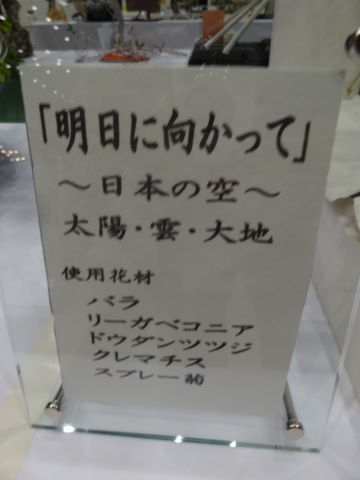 「明日に向かって」
～日本の空～
太陽・雲・大地
使用花材
バラ
リーガベコニア
ドウダンツツジ
クレマチス
スプレー菊